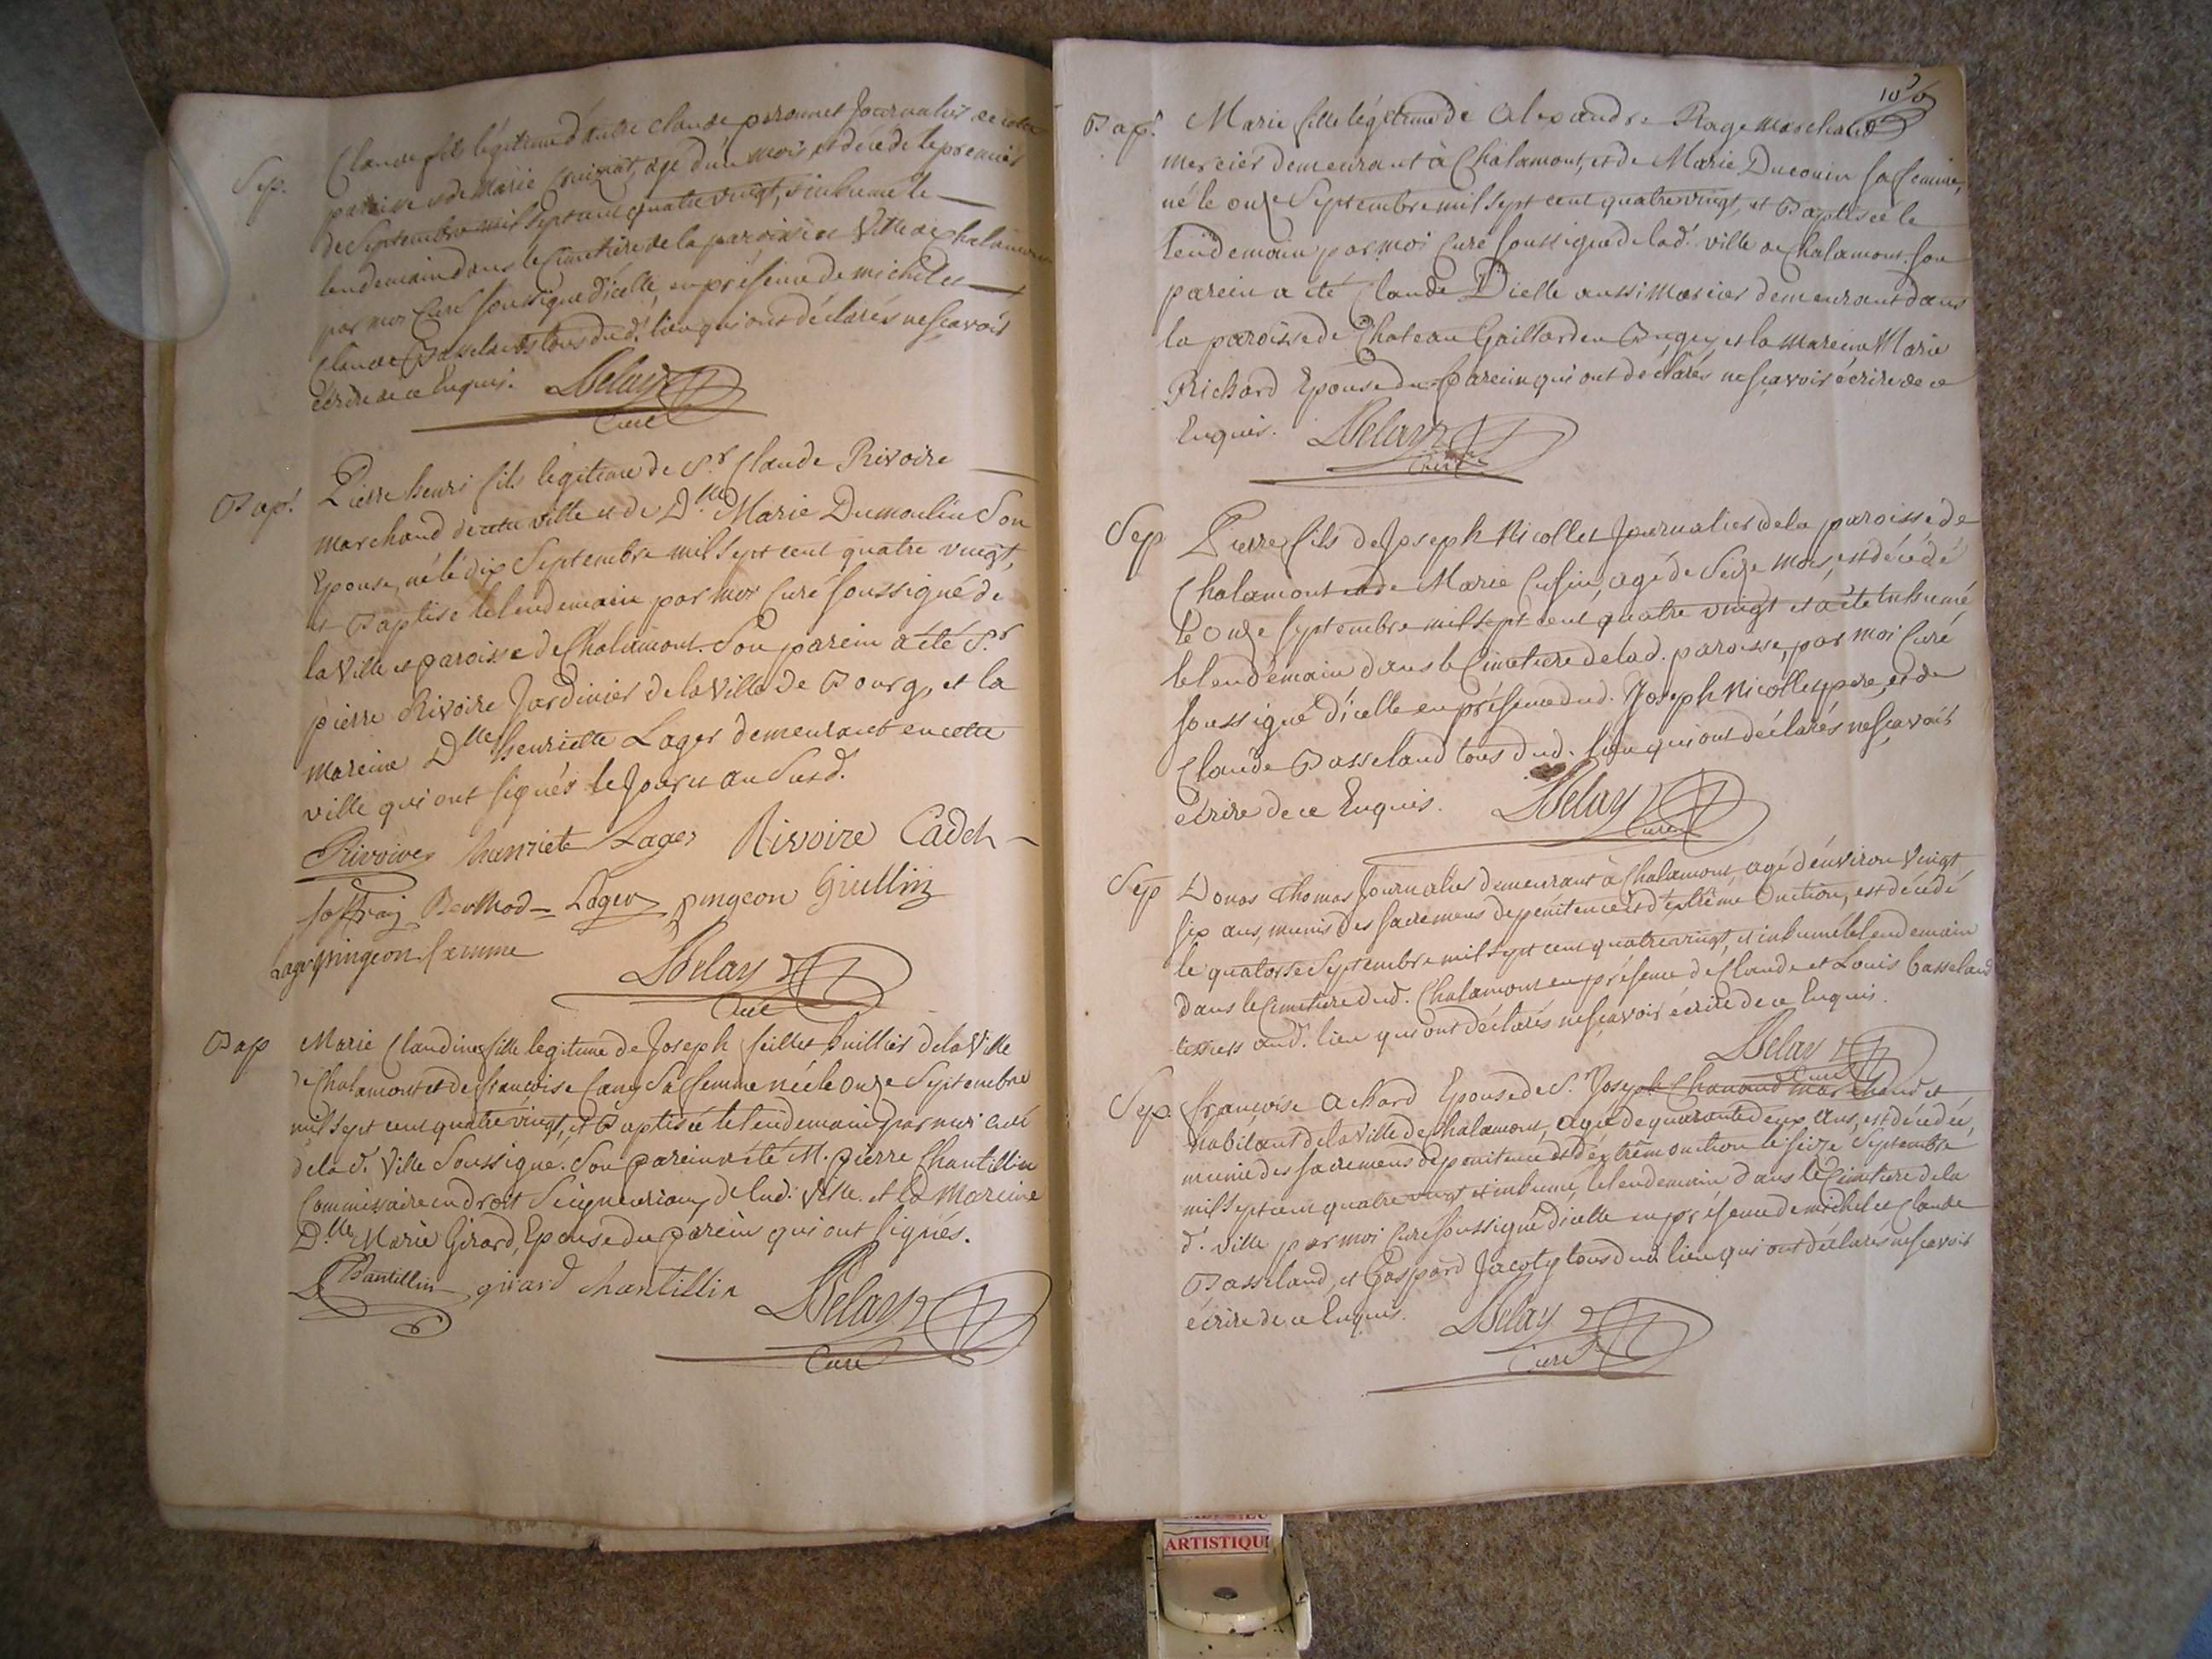 Sep. Claude fils légitime d'autre Claude peronnet Journalier de cette
paroisse et de Marie age d'un mois est décédé le premier
de Septembre mil sept cent quatre vingt, et inhumé le
lendemain dans le Cimetiere de la paroisse et Ville de Chalamont
par moi Curé soussigné d'icelle, en présence de michel et
Claude Basseland tous dud. lieu qui ont déclarés ne sçavoir
écrire de ce Enquis. Delay
Curé
Bap.t Pierre henri fils légitime de S.r Claude Rivoire
marchand de cette ville et de D.lle Marie Dumoulin Son
Epouse, né le dix Septembre mil sept cent quatre vingt,
et Baptisé le lendemain par moi Curé soussigné de
la Ville et paroisse de Chalamont. Son parein a été S.r
pierre Rivoire Jardinier de la Ville de Bourg, et la
mareine D.lle henriette Lager demeurant en cette
ville qui ont signés le Jour et an Susd.
Rivoire henriete Lager Rivoire Cadet
Joffray Berthod Lager pingeon Giullin
Lager pingeon famme
Delay
Curé
Bap Marie Claudine fille legitime de Joseph feillet huillier de la Ville
de Chalamont et de francoise Cany Sa femme née le onze Septembre
mil sept cent quatre vingt, et Baptisée le lendemain par moi curé
de lad. Ville Soussigné. Son parein a été M. pierre Chantillin
Commissaire en droit Seigneuriaux de lad. Ville. et la Mareine
D.lle Marie Girard, Epouse du parein qui ont signés.
Chantillin girard chantillin Delay
Curé
Bap.t Marie fille légitime de Alexandre Rage marchand
mercier demeurant à Chalamont, et de Marie Ducouin sa femme,
né le onze Septembre mil sept cent quatre vingt, et Baptisée le
lendemain par moi Curé soussigné de lad. ville de Chalamont. son
parein a été Claude Dielle aussi Mercier demeurant dans
la paroisse de Chateau Gaillard en Bugey et la mareine Marie
Richard Epouse du Parein qui ont déclarés ne sçavoir écrire de ce
Enquis. Delay
Curé
Sep Pierre fils de Joseph Nicollet Journalier de la paroisse de
Chalamont et de Marie Cusin, agé de Seize mois, est décédé
le onze septembre mil sept cent quatre vingt et a été Inhumé
le lendemain dans le Cimetiere de lad. paroisse, par moi Curé
soussigné d'icelle en présence dud. Joseph Nicollet pere, et de
Claude Basseland tous dud. lieu qui ont déclarés ne sçavoir
écrire de ce Enquis. Delay
Curé
Sep Donas Thomas Journalier demeurant à Chalamont, agé d'environ Vingt
six ans, munis des sacremens de pénitence et d'extrême Onction, est décédé
le quatorse Septembre mil sept cent quatre vingt, et inhumé le lendemain
dans le Cimetiere dud. Chalamont en présence de Claude et Louis basseland
aud. lieu qui ont déclarés ne sçavoir écrire de ce Enquis.
Delay
Curé
Sep. françoise Achard Epouse de S.r Joseph Chanand marchand et
habitant de la Ville de Chalamont, agée de quarante deux ans, est décédée,
munie des sacremens de pénitence et d'extrême onction le seize Septembre
mil sept cent quatre vingt et inhumé le lendemain dans le Cimetiere de la
d. ville par moi Curé soussigné d'icelle en présence de michel et Claude
Basseland, et Gaspard Jacoty tous dud lieu qui ont déclarés ne sçavoir
écrire de ce Enquis. Delay
Curé
ARTISTIQU